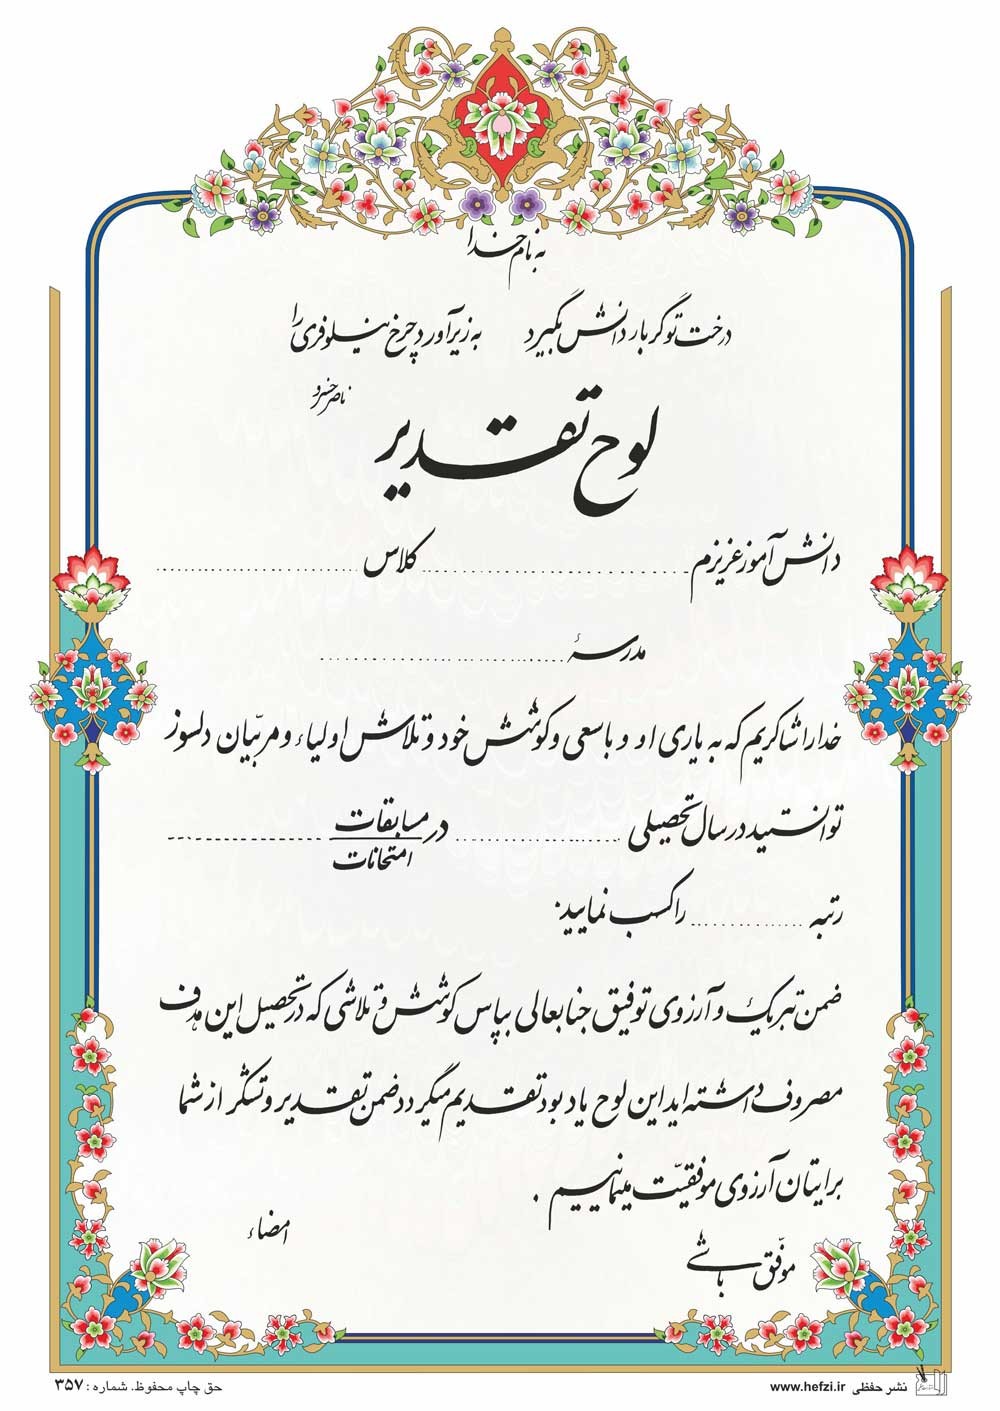 به نام خدا
درخت تو گر بار دانش بگیرد به زیر آورد چرخ نیلوفری را
ناصر خسرو
لوح تقدیر
دانش آموز عزیزم ........................ کلاس ........................
مدرسهٔ ........................
خدا را شاکریم که به یاری او و با سعی و کوشش خود و تلاش اولیاء و مربّیان دلسوز
توانستید در سال تحصیلی ................ در مسابقات ................
امتحانات
رتبه ................ را کسب نمایید.
ضمن تبریک و آرزوی توفیق جنابعالی بپاس کوشش و تلاشی که در تحصیل این هدف
مصروف داشته اید این لوح یاد بود تقدیم میگردد ضمن تقدیر و تشکر از شما
برایتان آرزوی موفقیّت مینمائیم .
امضاء
موفّق باشی
نشر حفظی www.hefzi.ir
حق چاپ محفوظ. شماره : ۳۵۷